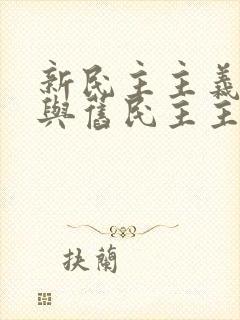 新民主主義
與舊民主主
抉蘭